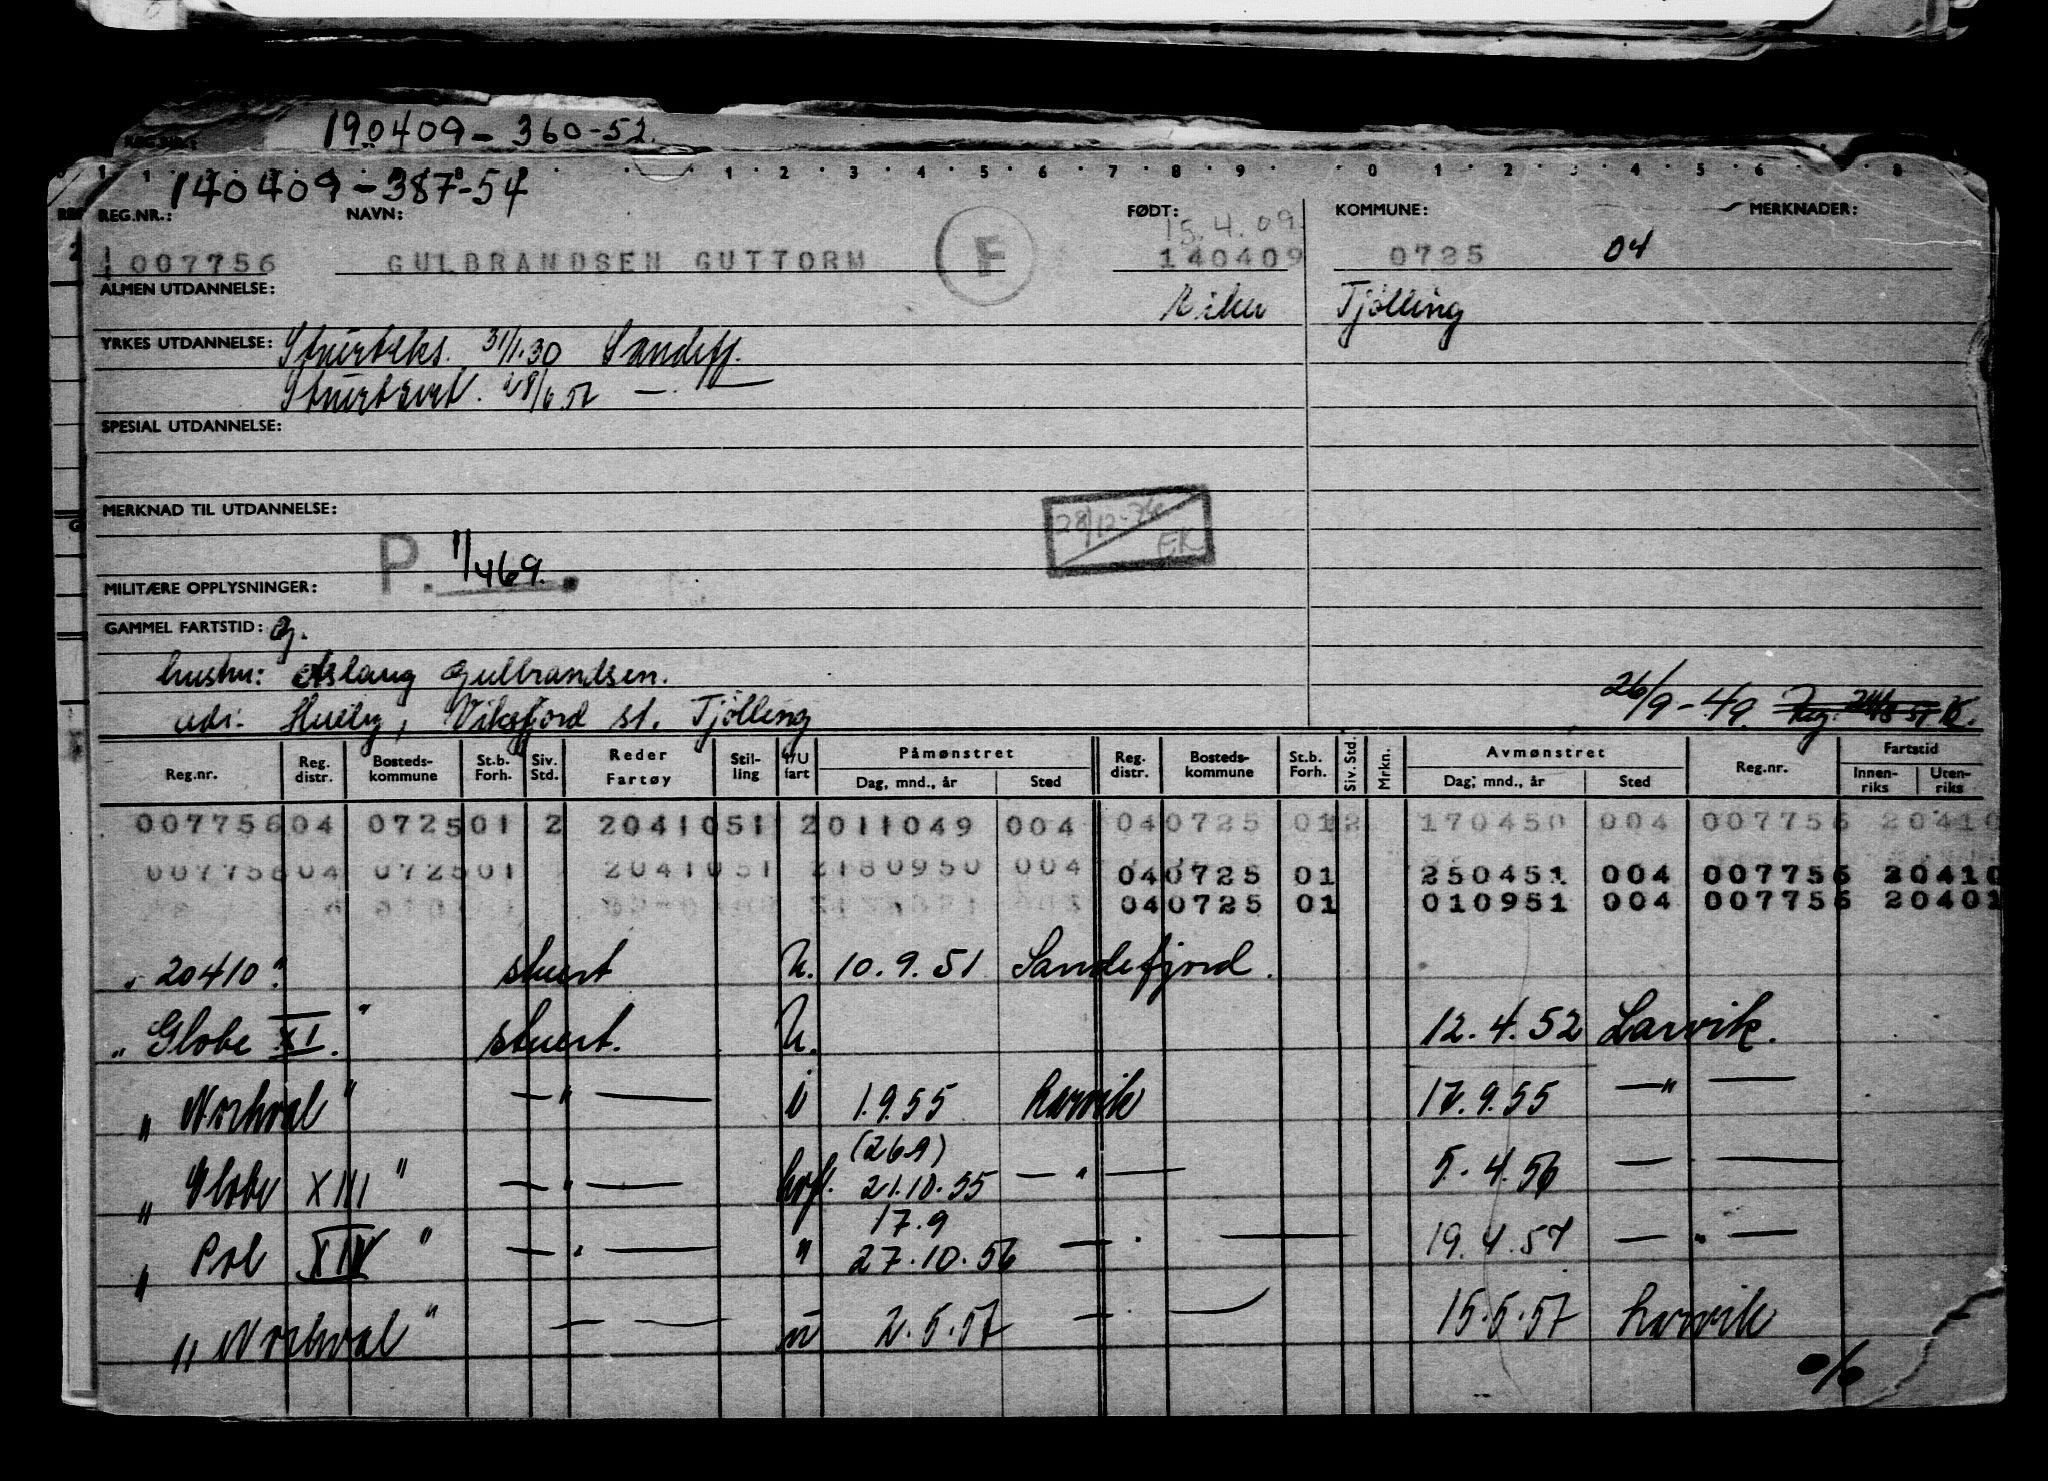 190409-360-52.
140409-387-54
REG.NR.: NAVN: FØDT: KOMMUNE: MERKNADER:
15.4.09.
007756 GULBRANDSEN GUTTORM F 140409 0725 04
ALMEN UTDANNELSE: Tjølling
YRKES UTDANNELSE: Stuertsks. 31/1.30 Sandefj.
Stuertsert. 28/6.52 — . —
SPESIAL UTDANNELSE:
MERKNAD TIL UTDANNELSE:
28/12-76 EK
P. 11/469.
MILITÆRE OPPLYSNINGER:
GAMMEL FARTSTID:
hustru: Aslaug Gulbrandsen.
adr. Viksfjord st. Tjølling
26/9-49.
Reg.nr. Reg. distr. Bosteds-kommune St.b. Forh. Siv. Std. Reder Fartøy Stil-ling I/U fart Påmønstret Dag, mnd., år Sted Reg. distr. Bosteds-kommune St.b. Forh. Siv. Std. Mrkn. Avmønstret Dag, mnd., år Sted Reg.nr. Fartstid Innen-riks Uten-riks
007756 04 0725 01 2 2041051 2 011049 004 04 0725 01 2 170450 004 007756 20410
007756 04 0725 01 2041051 2 180950 004 04 0725 01 250451 004 007756 20410
04 0725 01 010951 004 007756 20401
" 20410" stuert U. 10.9.51 Sandefjord.
" Globe XI." stuert. U. 12.4.52 Larvik.
" Norhval" — " — i 1.9.55 Larvik 17.9.55 — " —
(26.9)
" Globe XIII" — " — hvf. 21.10.55 — " — 5.4.56 — " —
17.9
" Pol XIV" — " — " 27.10.56 — " — 19.4.57 — " —
" Norhval" — — 2.5.57 — " — 15.5.57 Larvik
0/6